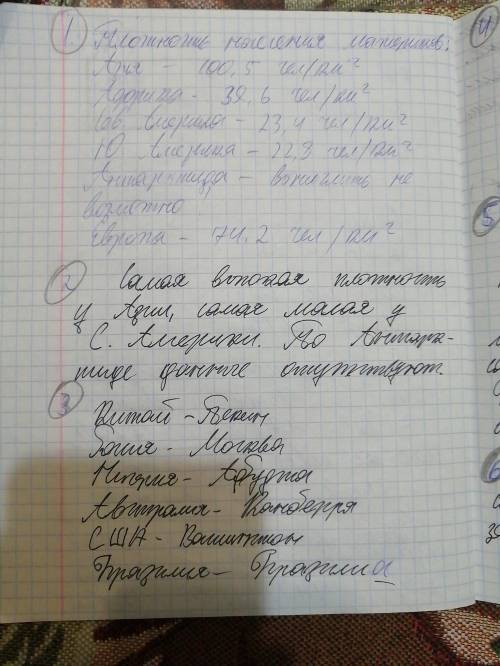 1. Плотность населения материков:
Азия - 100,5 чел/км²
Африка - 39,6 чел/км²
Сев Америка - 23,4 чел/км²
Ю Америка - 22,8 чел/км²
Антарктида - вычислить не
возможно
Европа - 74,2 чел/км²
2 Самая высокая плотность
у Азии, самая малая у
С. Америки. По Антарк-
тиде данные отсутствуют.
3 Китай - Пекин
- Москва
Нигерия - Абуджа
Австралия - Канберра
США - Вашингтон
Бразилия - Бразилиа
4
5
6